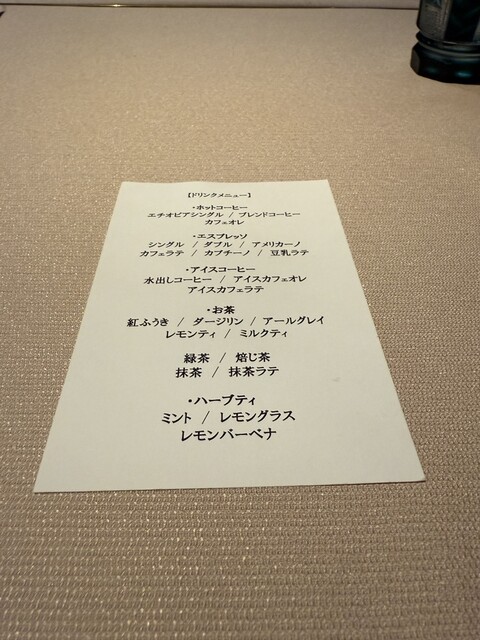 【ドリンクメニュー】
・ホットコーヒー
エチオピアシングル / ブレンドコーヒー
カフェオレ
・エスプレッソ
シングル / ダブル / アメリカーノ
カフェラテ / カプチーノ / 豆乳ラテ
・アイスコーヒー
水出しコーヒー / アイスカフェオレ
アイスカフェラテ
・お茶
紅ふうき / ダージリン / アールグレイ
レモンティ / ミルクティ
緑茶 / 焙じ茶
抹茶 / 抹茶ラテ
・ハーブティ
ミント / レモングラス
レモンバーベナ